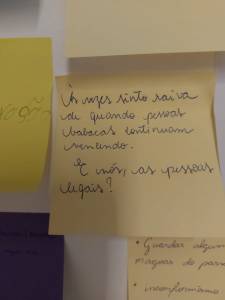 Às vezes sinto raiva
de quando pessoas
babacas continuam
vencendo.
E nós, as pessoas
legais?
• Guardar algum
mágoas do pass
• inconformismo